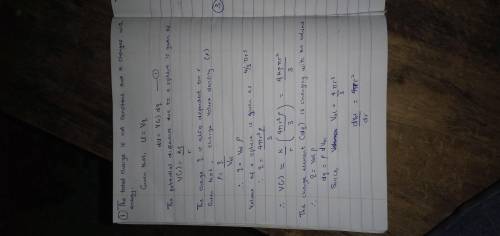 3
① The total charge is not constant and it changes with
energy.
Given that, U = Vq
dU = V(r) dq — ①
The potential difference due to a sphere is given as
V(r) = kq
r
The charge q is also dependent on r
Given that, charge volume density (ρ)
ρ = q
Vol
∴ q = Vol ρ
Volume of a sphere is given as 4/3 πr³
∴ q = 4πr³ρ
3
∴ V(r) = k ( 4πr³ρ
3 ) = 4kρπr²
r 3
The charge element (dq) is changing with the volume
∴ q = Vol ρ
dq = ρ dVol
Since Vol = 4 πr³
3
dVol = 4πr²
dr